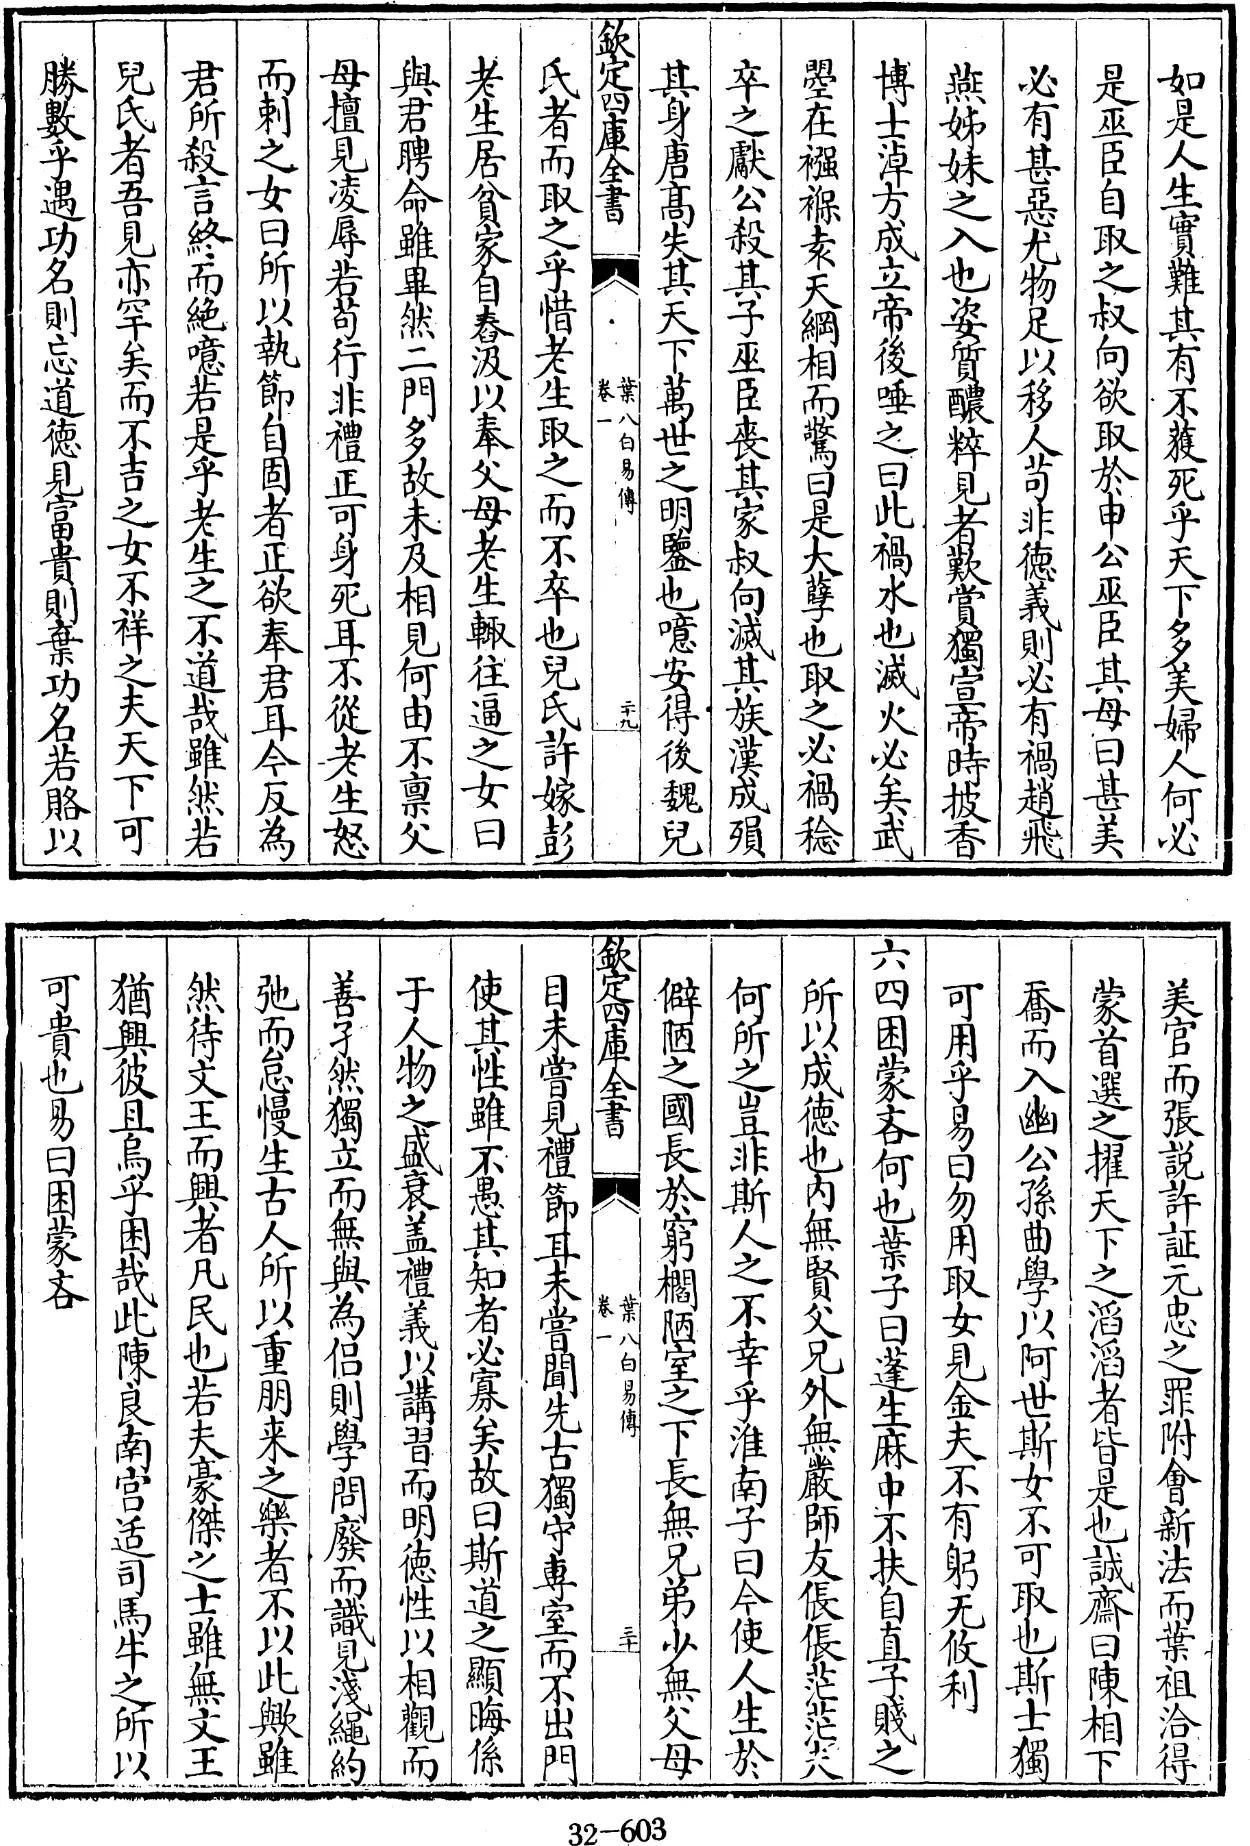 如是人生實難其有不獲死乎天下多美婦人何必
是巫臣自取之叔向欲取於申公巫臣其母曰甚美
必有甚惡尤物足以移人苟非徳義則必有禍趙飛
燕姊妹之入也姿質醲粹見者歎賞獨宣帝時披香
博士淖方成立帝後唾之曰此禍水也滅火必矣武
曌在襁褓袁天綱相而驚曰是大孽也取之必禍稔
卒之獻公殺其子巫臣喪其家叔向滅其族漢成殞
其身唐髙失其天下萬世之明鑒也噫安得後魏兒
欽定四庫全書
葉八白易傳
卷一
二十九
氏者而取之乎惜老生取之而不卒也兒氏許嫁彭
老生居貧家自舂汲以奉父母老生輙往逼之女曰
與君聘命雖畢然二門多故未及相見何由不禀父
母擅見凌辱若苟行非禮正可身死耳不從老生怒
而刺之女曰所以執節自固者正欲奉君耳今反為
君所殺言終而絶噫若是乎老生之不道哉雖然若
兒氏者吾見亦罕矣而不吉之女不祥之夫天下可
勝數乎遇功名則忘道徳見富貴則棄功名若賂以
美官而張説許証元忠之罪附會新法而葉祖洽得
蒙首選之擢天下之滔滔者皆是也誠齋曰陳相下
喬而入幽公孫曲學以阿世斯女不可取也斯士獨
可用乎易曰勿用取女見金夫不有躬无攸利
六四困蒙吝何也葉子曰蓬生麻中不扶自直子賤之
所以成徳也内無賢父兄外無嚴師友倀倀茫茫然
何所之豈非斯人之不幸乎淮南子曰今使人生於
僻陋之國長於窮櫩陋室之下長無兄弟少無父母
欽定四庫全書
葉八白易傳
卷一
三十
目未嘗見禮節耳未嘗聞先古獨守專室而不出門
使其性雖不愚其知者必寡矣故曰斯道之顯晦係
于人物之盛衰盖禮義以講習而明徳性以相觀而
善孑然獨立而無與為侣則學問廢而識見淺繩約
弛而怠慢生古人所以重朋来之樂者不以此歟雖
然待文王而興者凡民也若夫豪傑之士雖無文王
猶興彼且烏乎困哉此陳良南宫适司馬牛之所以
可貴也易曰困蒙吝
32-603